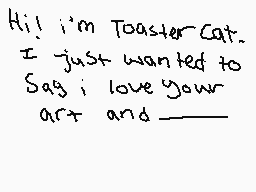 Hi! i'm Toaster cat.
I just wanted to
Say i love your
art and ______